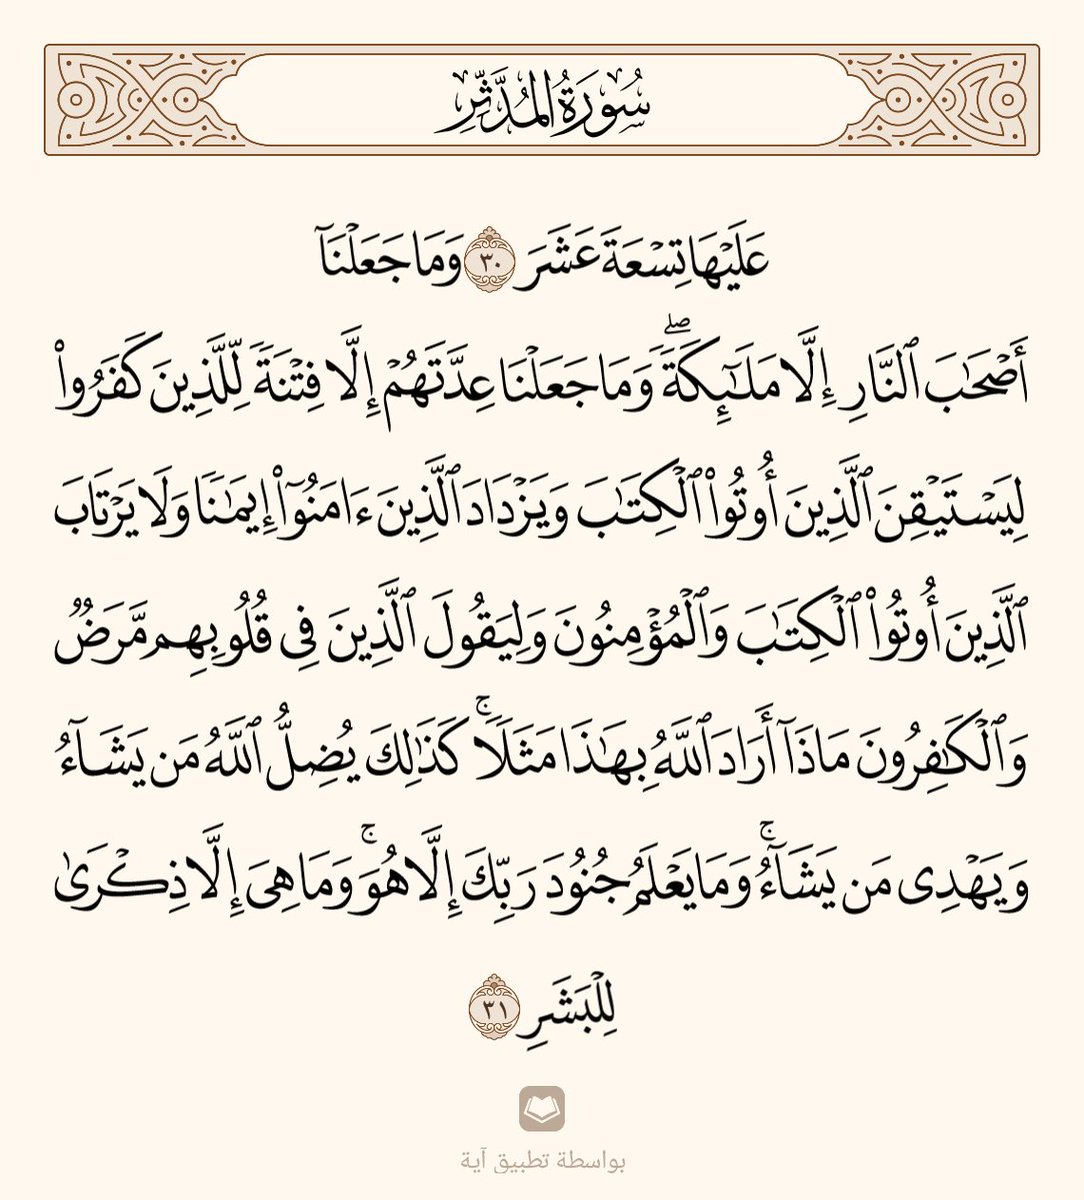 سُورَةُ المُدَّثِّرِ
عَلَيۡهَا تِسۡعَةَ عَشَرَ ٣٠ وَمَا جَعَلۡنَآ
أَصۡحَٰبَ ٱلنَّارِ إِلَّا مَلَٰٓئِكَةٗۖ وَمَا جَعَلۡنَا عِدَّتَهُمۡ إِلَّا فِتۡنَةٗ لِّلَّذِينَ كَفَرُواْ
لِيَسۡتَيۡقِنَ ٱلَّذِينَ أُوتُواْ ٱلۡكِتَٰبَ وَيَزۡدَادَ ٱلَّذِينَ ءَامَنُوٓاْ إِيمَٰنٗا وَلَا يَرۡتَابَ
ٱلَّذِينَ أُوتُواْ ٱلۡكِتَٰبَ وَٱلۡمُؤۡمِنُونَ وَلِيَقُولَ ٱلَّذِينَ فِي قُلُوبِهِم مَّرَضٞ
وَٱلۡكَٰفِرُونَ مَاذَآ أَرَادَ ٱللَّهُ بِهَٰذَا مَثَلٗاۚ كَذَٰلِكَ يُضِلُّ ٱللَّهُ مَن يَشَآءُ
وَيَهۡدِي مَن يَشَآءُۚ وَمَا يَعۡلَمُ جُنُودَ رَبِّكَ إِلَّا هُوَۚ وَمَا هِيَ إِلَّا ذِكۡرَىٰ
لِلۡبَشَرِ ٣١
بواسطة تطبيق آية